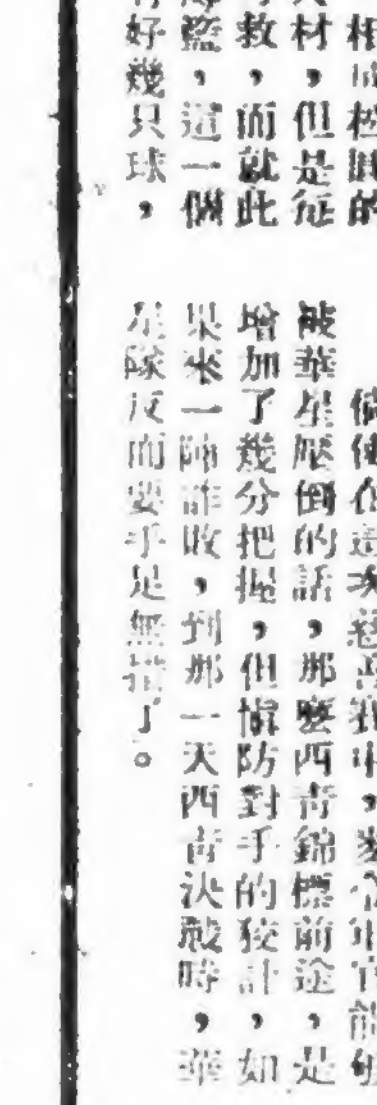 材，但是
救，而就此
籃，這一個
好幾只球，
倘使在這次慈善賽中，
被華星壓倒的話，那麼西青錦標前途，是
增加了幾分把握，但慎防對手的狡計，如
果來一陣詐敗，到那一天西青決戰時，華
星隊反而要手足無措了。